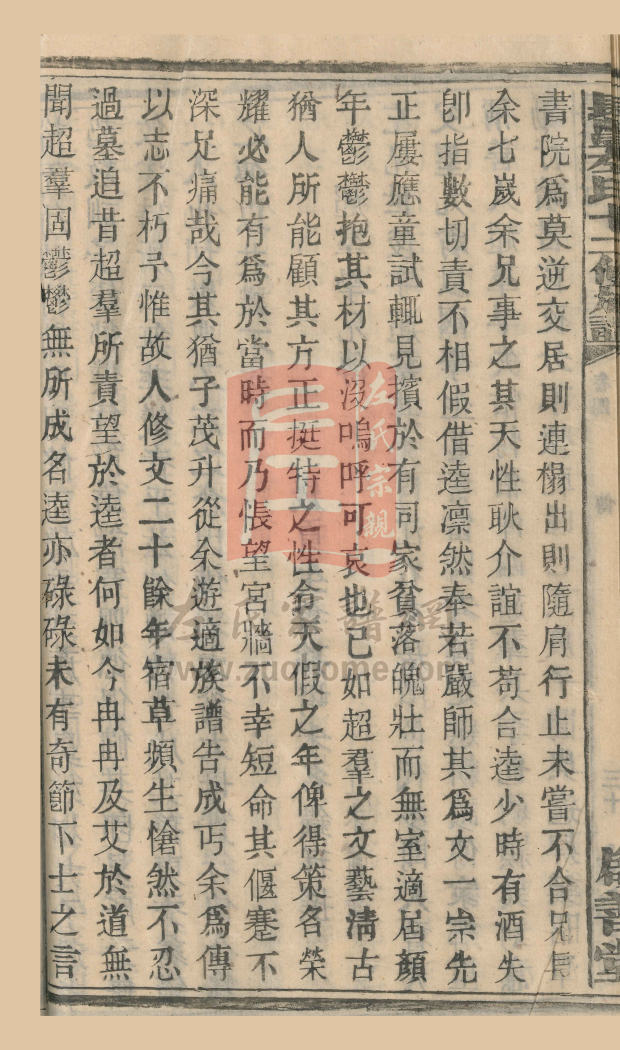 書院爲莫逆交居則連榻出則隨肩行止未嘗不合兄長
余七歲余兄事之其天性耿介誼不苟合逵少時有酒失
卽指數切責不相假借逵凜然奉若嚴師其爲文一崇先
正屢應童試輒見擯於有司家貧落魄壯而無室適屆顏
年鬱鬱抱其材以沒嗚呼可哀也已如超羣之文藝淸古
猶人所能顧其方正挺特之性令天假之年俾得策名榮
耀必能有爲於當時而乃悵望宮牆不幸短命其偃蹇不
深足痛哉今其猶子茂升從余遊適族譜告成丐余爲傳
以志不朽予惟故人修文二十餘年宿草頻生愴然不忍
過墓追昔超羣所責望於逵者何如今冉冉及艾於道無
聞超羣固鬱鬱無所成名逵亦碌碌未有奇節下士之言
左氏宗親
左氏家譜網
www.zuojiapu.com